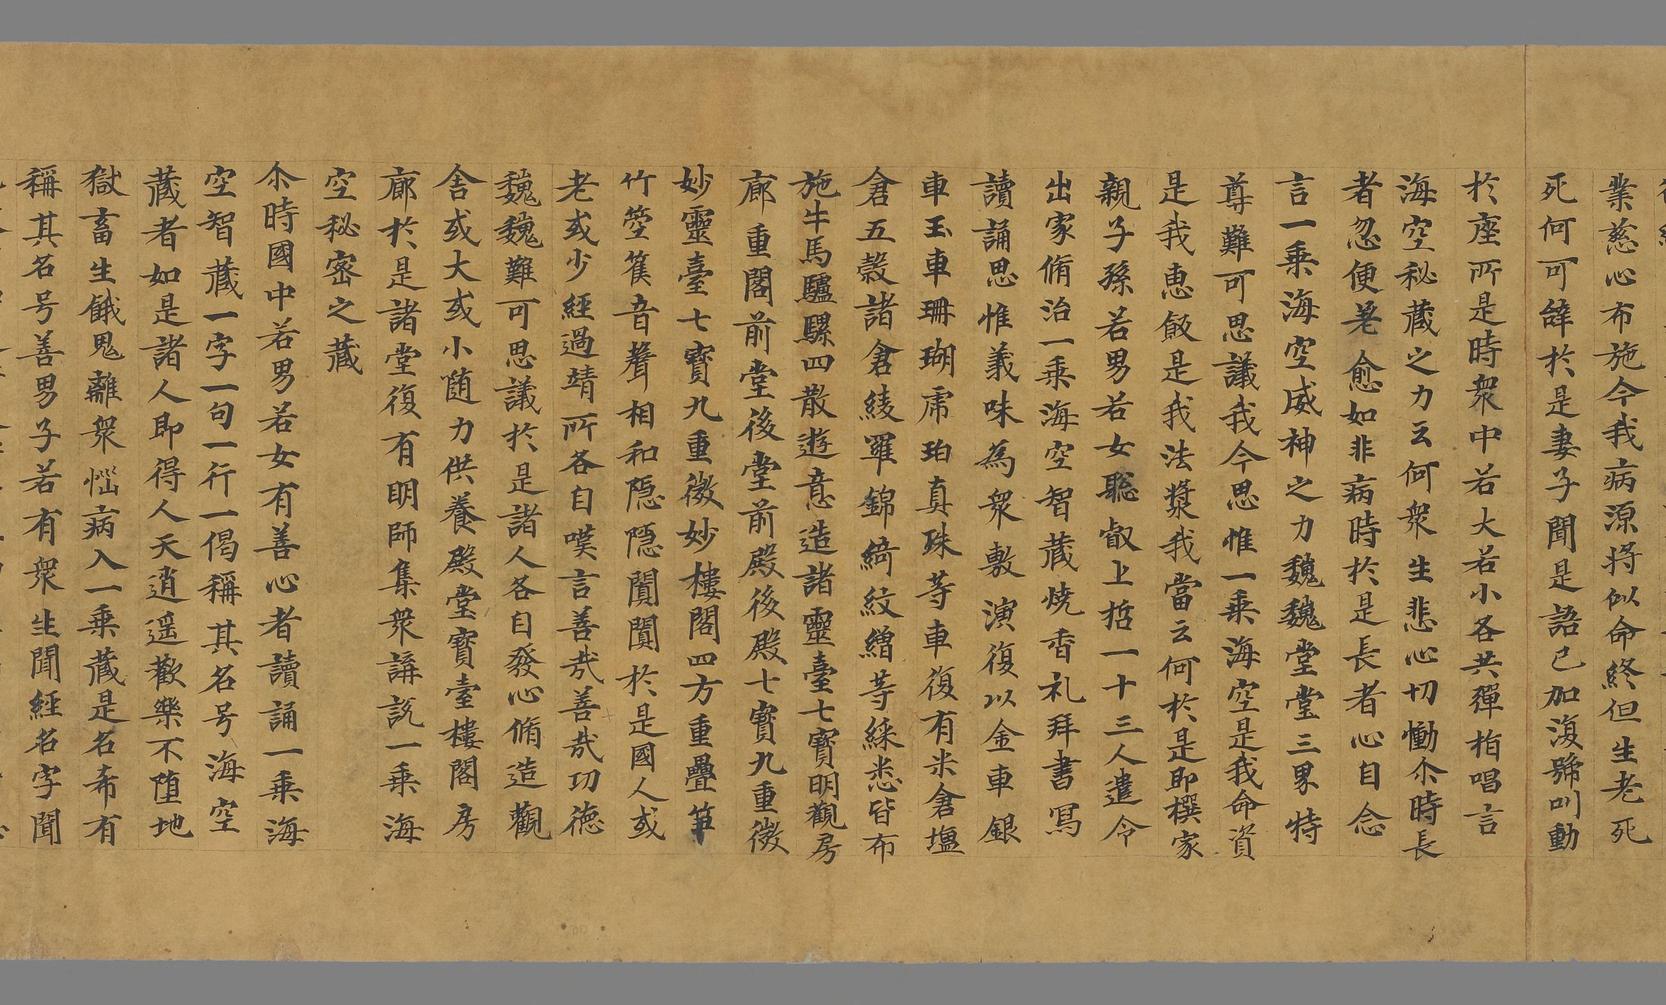 業慈心布施今我病源将似命終但生老死
死何可辞於是妻子聞是語已加復號叫動
於座所是時衆中若大若小各共彈栢唱言
海空秘藏之力云何衆生悲心切慟尒時長
者忽便差愈如非病時於是長者心自念
言一乗海空威神之力魏魏堂堂三界特
尊難可思議我今思惟一乗海空是我命資
是我惠飯是我法漿我當云何於是即撰家
親子孫若男若女聡叡上哲一十三人遣令
出家脩治一乗海空智藏焼香礼拜書寫
讀誦思惟義味為衆敷演復以金車銀
車玉車珊瑚虎珀真珠等車復有米倉塩
倉五穀諸倉綾羅錦綺紋繒等綵悉皆布
施牛馬驢騾四散遊意造諸靈臺七寳明觀房
廊重閣前堂後堂前殿後殿七寳九重微
妙靈臺七寳九重微妙樓閣四方重疊筆
竹箜篌音聲相和隠隠闐闐於是國人或
老或少經過靖所各自嘆言善㢤善㢤功徳
魏魏難可思議於是諸人各自發心脩造觀
舎或大或小随力供養殿堂寳臺樓閣房
廊於是諸堂復有明師集衆講說一乗海
空秘密之藏
尒時國中若男若女有善心者讀誦一乗海
空智藏一字一句一行一偈稱其名号海空
藏者如是諸人即得人天逍遥歡樂不堕地
獄畜生餓鬼離衆惱病入一乗藏是名希有
稱其名号善男子若有衆生聞經名字聞